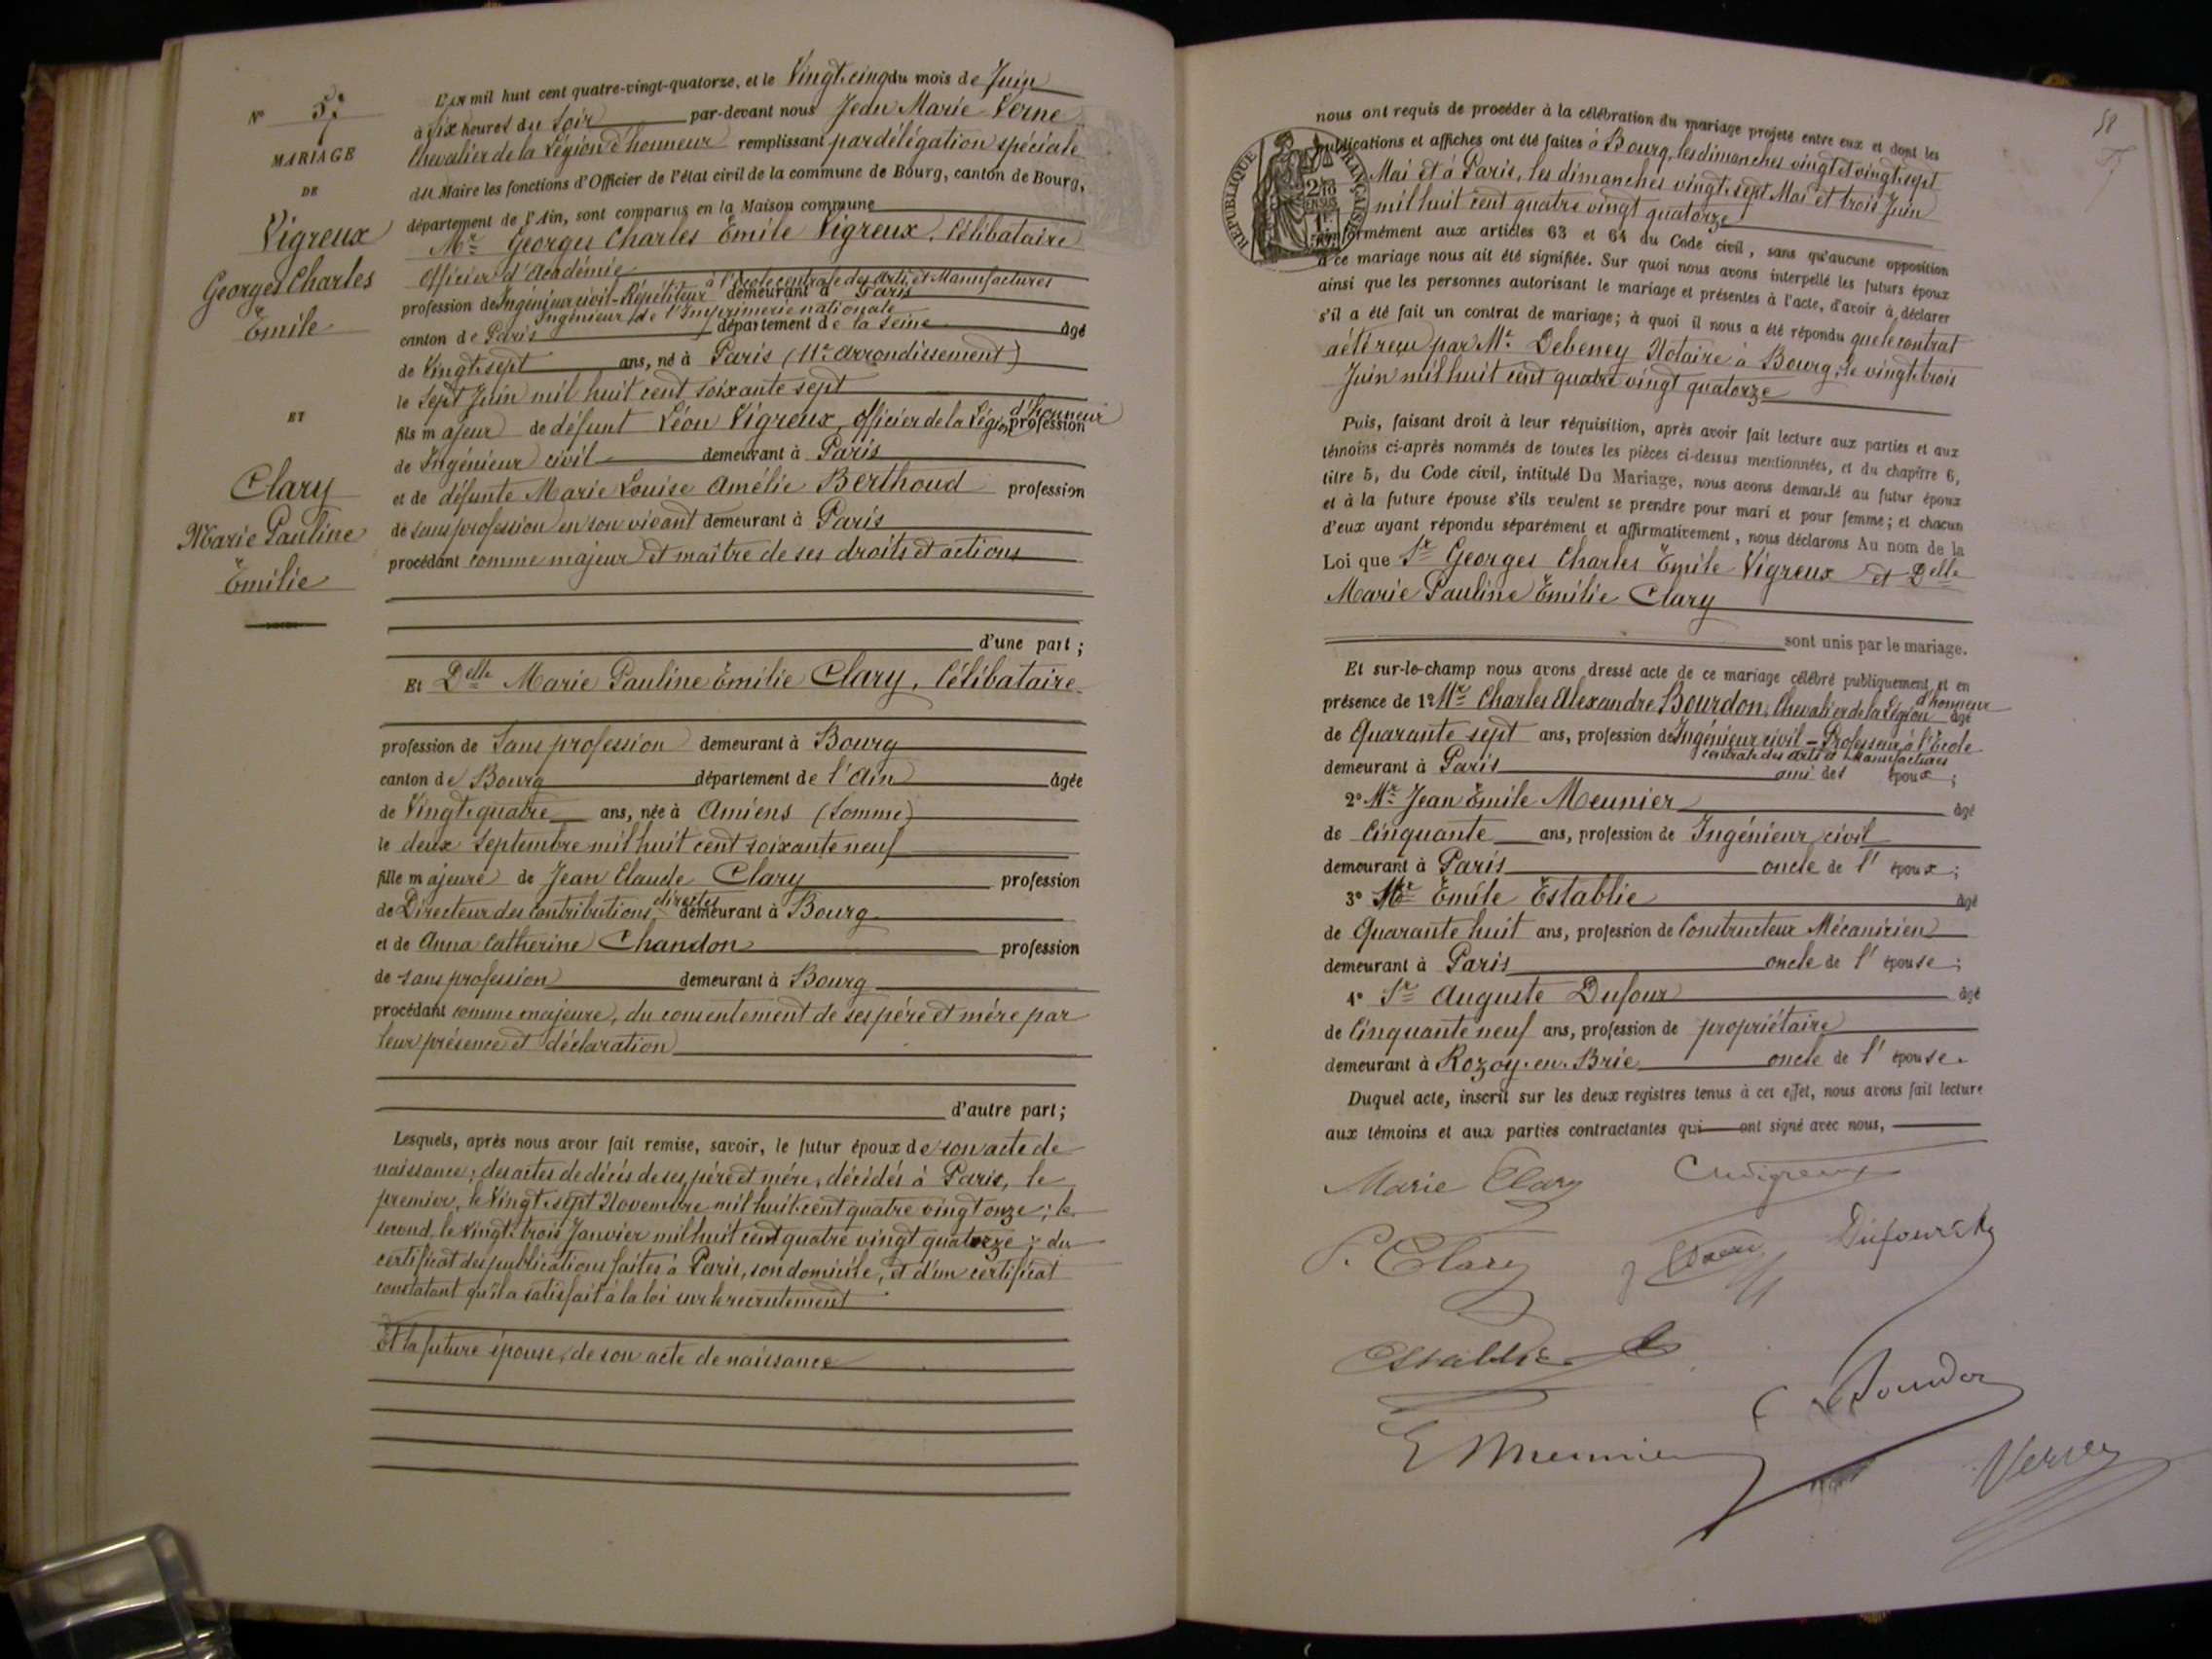 N° 57
MARIAGE
DE
Vigreux
Georges Charles
Emile
ET
Clary
Marie Pauline
Emilie
L'an mil huit cent quatre-vingt-quatorze, et le Vingt-cinq du mois de Juin
à Six heures du Soir par-devant nous Jean Marie Verne
Chevalier de la Légion d'honneur remplissant par délégation spéciale
du Maire les fonctions d'Officier de l'état civil de la commune de Bourg, canton de Bourg,
département de l'Ain, sont comparus en la Maison commune
Mr Georges Charles Emile Vigreux, Célibataire
Officier d'Académie
à l'Ecole centrale des Arts et Manufactures
profession de Ingénieur civil - Répétiteur demeurant à Paris
Ingénieur de l'Imprimerie nationale
canton de Paris département de la Seine âgé
de Vingt-sept ans, né à Paris (11e arrondissement)
le Sept Juin mil huit cent soixante sept
fils majeur de défunt Léon Vigreux, Officier de la Légion d'honneur profession
de Ingénieur civil demeurant à Paris
et de défunte Marie Louise Amélie Berthoud profession
de sans profession en son vivant demeurant à Paris
procédant comme majeur et maître de ses droits et actions
d'une part ;
Et Delle Marie Pauline Emilie Clary, Célibataire
profession de Sans profession demeurant à Bourg
canton de Bourg département de l'Ain âgée
de Vingt-quatre ans, née à Amiens (Somme)
le deux Septembre mil huit cent soixante neuf
fille majeure de Jean Claude Clary profession
de Directeur des Contributions directes demeurant à Bourg
et de Anna Catherine Chandon profession
de sans profession demeurant à Bourg
procédant comme majeure, du consentement de ses père et mère par
leur présence et déclaration
d'autre part ;
Lesquels, après nous avoir fait remise, savoir, le futur époux de son acte de
naissance ; des actes de décès de ses père et mère, décédés à Paris, le
premier, le Vingt-sept Novembre mil huit cent quatre vingt onze ; le
second, le vingt-trois Janvier mil huit cent quatre vingt quatorze ; du
certificat des publications faites à Paris, son domicile, et d'un certificat
constatant qu'il a satisfait à la loi sur le recrutement
Et la future épouse, de son acte de naissance
58
RÉPUBLIQUE FRANÇAISE
nous ont requis de procéder à la célébration du mariage projeté entre eux et dont les
publications et affiches ont été faites à Bourg, les dimanches vingt et vingt-sept
Mai et à Paris, les dimanches vingt-sept Mai et trois Juin
mil huit cent quatre vingt quatorze
conformément aux articles 63 et 64 du Code civil, sans qu'aucune opposition
à ce mariage nous ait été signifiée. Sur quoi nous avons interpellé les futurs époux
ainsi que les personnes autorisant le mariage et présentes à l'acte, d'avoir à déclarer
s'il a été fait un contrat de mariage ; à quoi il nous a été répondu que le contrat
a été reçu par Me Debeney Notaire à Bourg, le vingt-trois
Juin mil huit cent quatre vingt quatorze
Puis, faisant droit à leur réquisition, après avoir fait lecture aux parties et aux
témoins ci-après nommés de toutes les pièces ci-dessus mentionnées, et du chapitre 6,
titre 5, du Code civil, intitulé Du Mariage, nous avons demandé au futur époux
et à la future épouse s'ils veulent se prendre pour mari et pour femme ; et chacun
d'eux ayant répondu séparément et affirmativement, nous déclarons Au nom de la
Loi que Sr Georges Charles Emile Vigreux et Delle
Marie Pauline Emilie Clary
sont unis par le mariage.
Et sur-le-champ nous avons dressé acte de ce mariage célébré publiquement et en
présence de 1° Mr Charles Alexandre Bourdon, Chevalier de la Légion d'honneur âgé
de Quarante sept ans, profession de Ingénieur civil - Professeur à l'Ecole
centrale des Arts et Manufactures
demeurant à Paris ami des époux ;
2° Mr Jean Emile Meunier âgé
de Cinquante ans, profession de Ingénieur civil
demeurant à Paris oncle de l'époux ;
3° Mr Emile Establie âgé
de Quarante huit ans, profession de Constructeur Mécanicien
demeurant à Paris oncle de l'épouse ;
4° Sr Auguste Dufour âgé
de Cinquante neuf ans, profession de propriétaire
demeurant à Rozoy-en-Brie oncle de l'épouse.
Duquel acte, inscrit sur les deux registres tenus à cet effet, nous avons fait lecture
aux témoins et aux parties contractantes qui ont signé avec nous,
Marie Clary
Vigreux
P. Clary
Clary
Dufour
Establie
C Bourdon
E Meunier
Verne